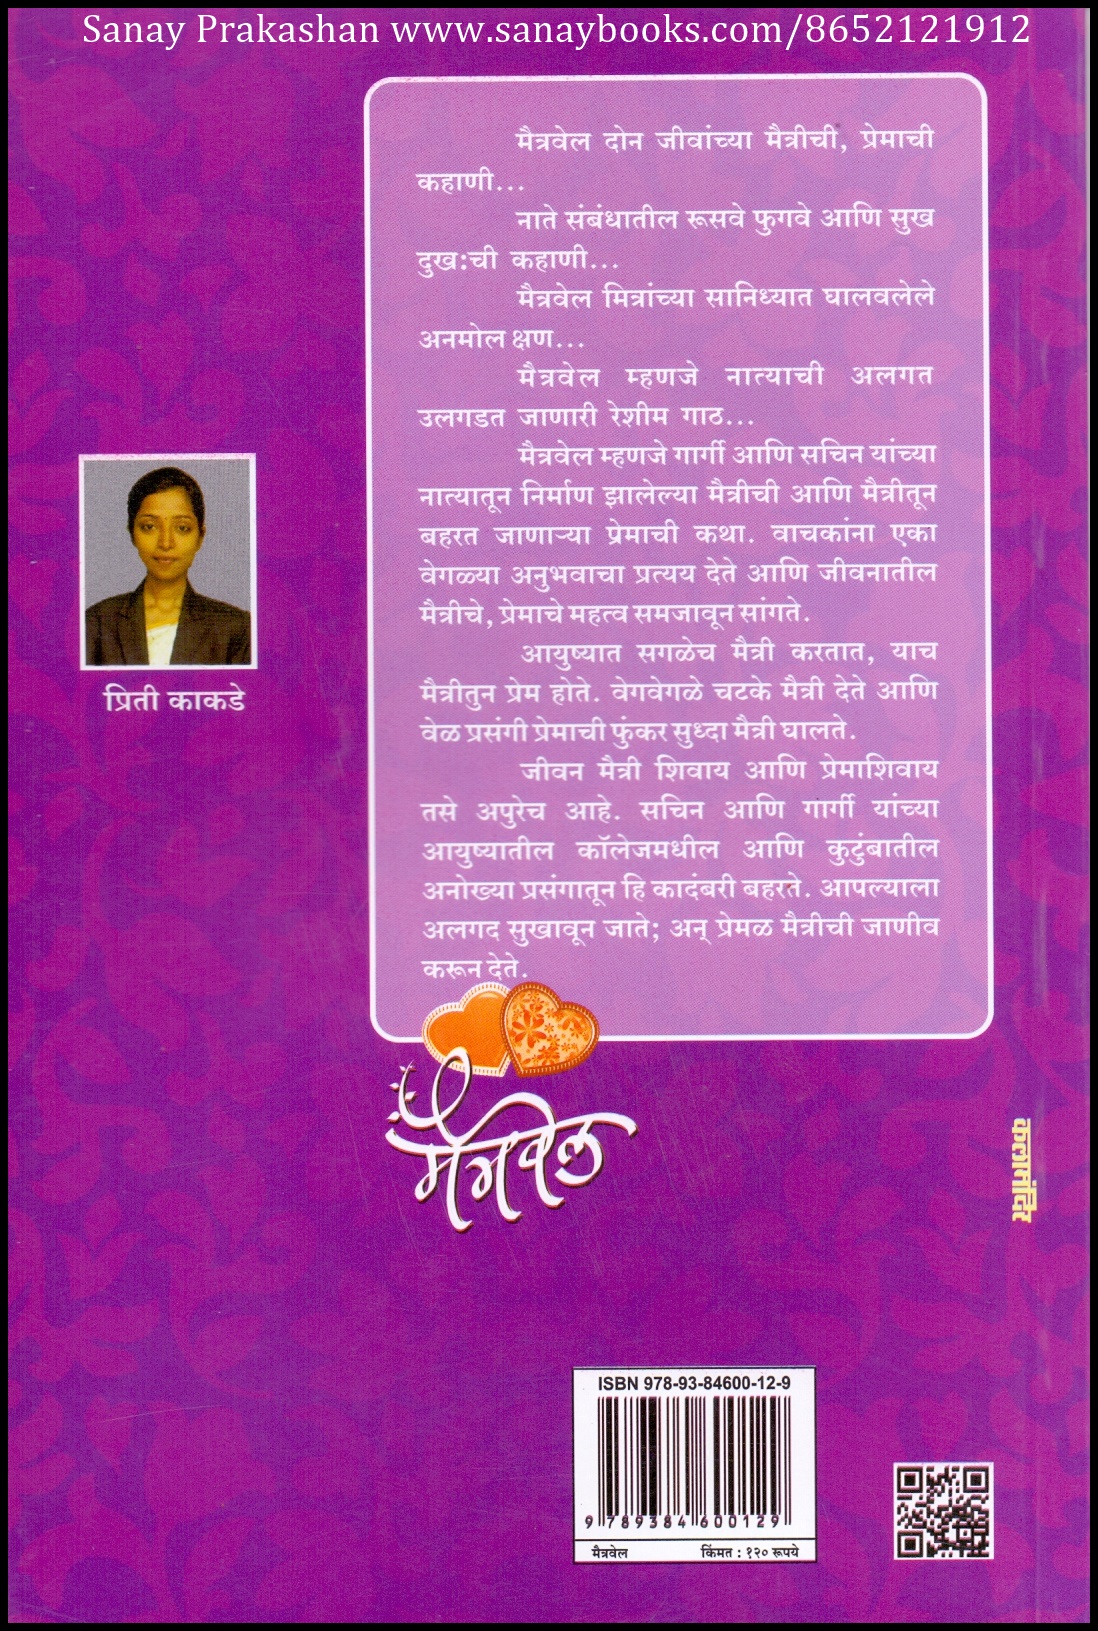 Sanay Prakashan www.sanaybooks.com/8652121912
मैत्रवेल दोन जीवांच्या मैत्रीची, प्रेमाची
कहाणी...
नाते संबंधातील रूसवे फुगवे आणि सुख
दुख:ची कहाणी...
मैत्रवेल मित्रांच्या सानिध्यात घालवलेले
अनमोल क्षण...
मैत्रवेल म्हणजे नात्याची अलगत
उलगडत जाणारी रेशीम गाठ...
मैत्रवेल म्हणजे गार्गी आणि सचिन यांच्या
नात्यातून निर्माण झालेल्या मैत्रीची आणि मैत्रीतून
बहरत जाणाऱ्या प्रेमाची कथा. वाचकांना एका
वेगळ्या अनुभवाचा प्रत्यय देते आणि जीवनातील
मैत्रीचे, प्रेमाचे महत्व समजावून सांगते.
आयुष्यात सगळेच मैत्री करतात, याच
मैत्रीतुन प्रेम होते. वेगवेगळे चटके मैत्री देते आणि
वेळ प्रसंगी प्रेमाची फुंकर सुध्दा मैत्री घालते.
जीवन मैत्री शिवाय आणि प्रेमाशिवाय
तसे अपुरेच आहे. सचिन आणि गार्गी यांच्या
आयुष्यातील कॉलेजमधील आणि कुटुंबातील
अनोख्या प्रसंगातून हि कादंबरी बहरते. आपल्याला
अलगद सुखावून जाते; अन् प्रेमळ मैत्रीची जाणीव
करून देते.
प्रिती काकडे
मैत्रवेल
कलामंदिर
ISBN 978-93-84600-12-9
9 789384 600129
मैत्रवेल किंमत : १२० रूपये